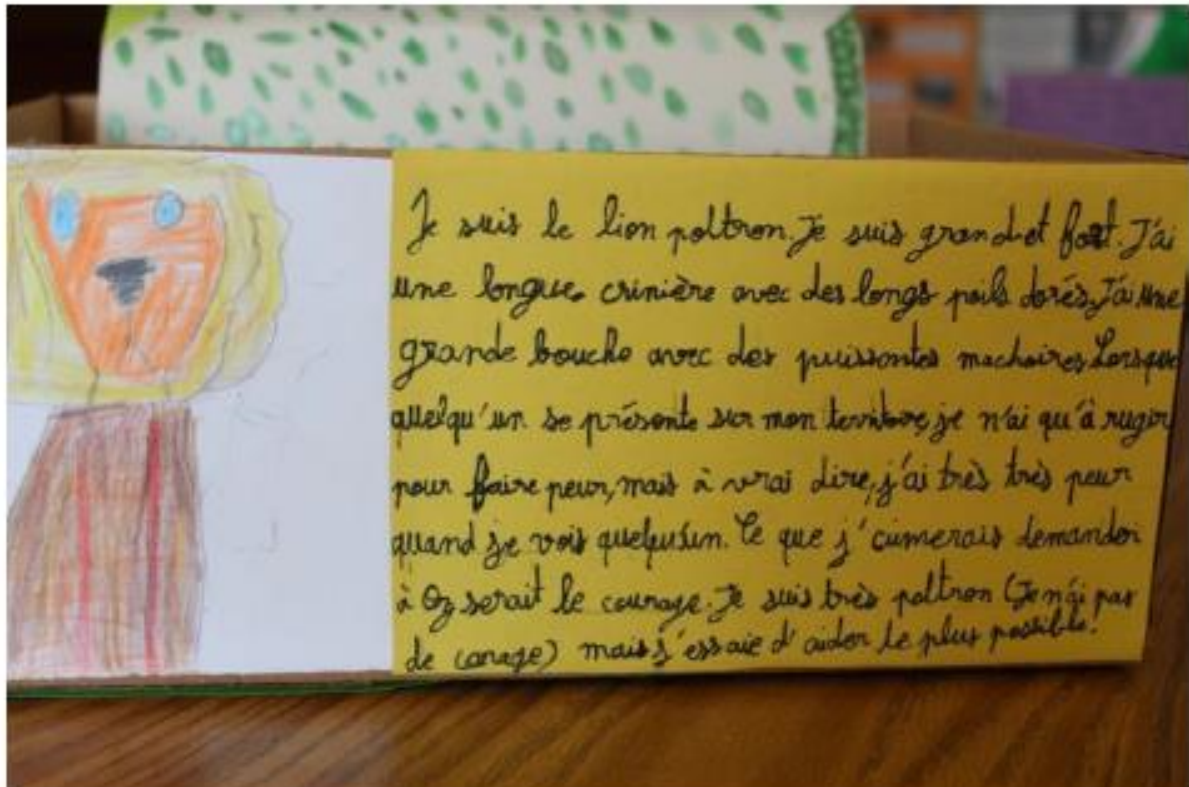 Je suis le lion poltron. Je suis grand et fort. J'ai
une longue crinière avec des longs poils dorés. J'ai une
grande bouche avec des puissantes machoires. Lorsque
quelqu'un se présente sur mon territoire, je n'ai qu'à rugir
pour faire peur, mais à vrai dire, j'ai très très peur
quand je vois quelqu'un. Ce que j'aimerais demander
à Oz serait le courage. Je suis très poltron (Je n'ai pas
de courage) mais j'essaie d'aider le plus possible!